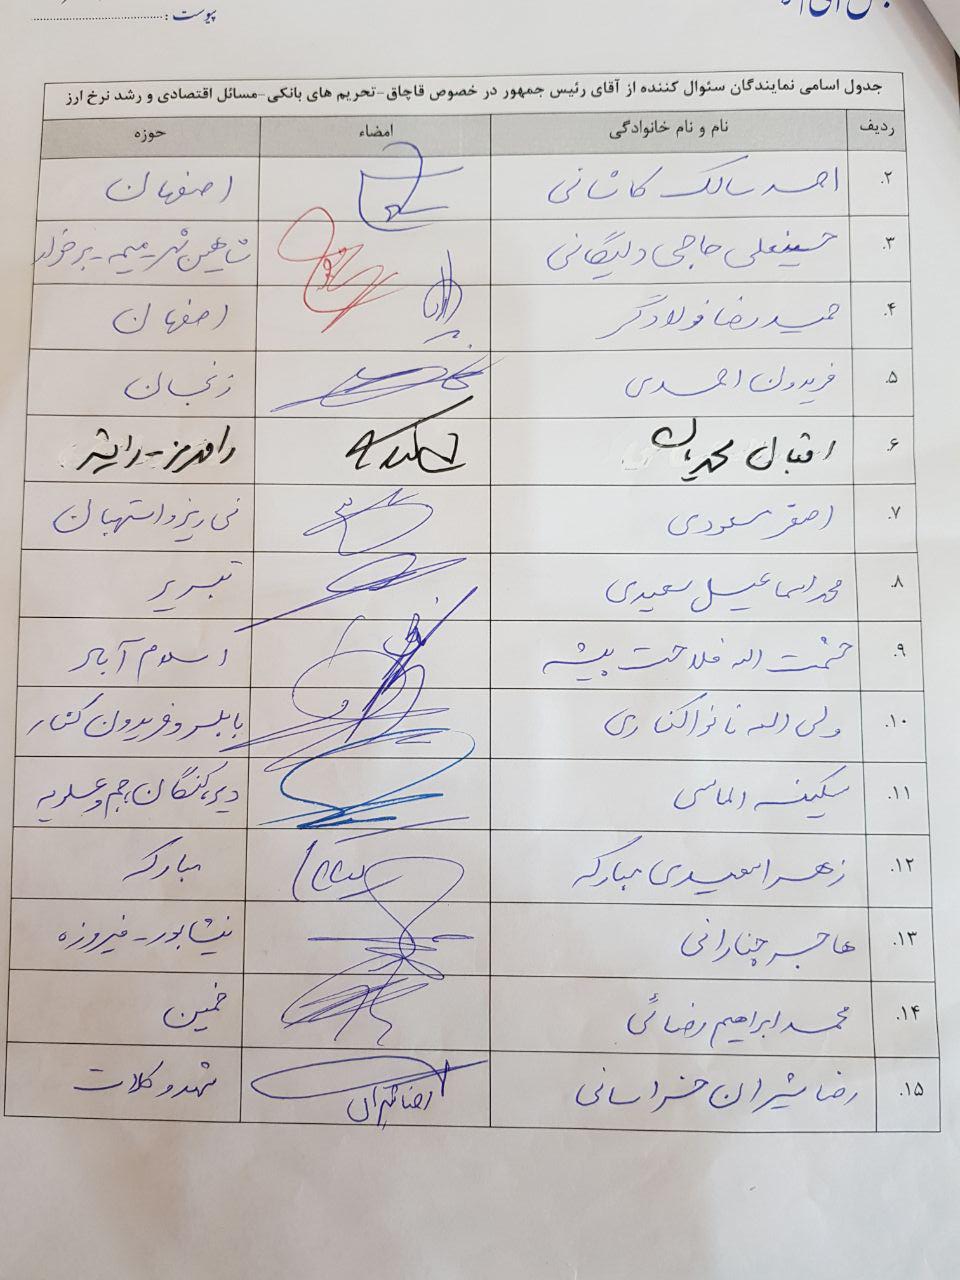 پیوست :
جدول اسامی نمایندگان سئوال کننده از آقای رئیس جمهور در خصوص قاچاق-تحریم های بانکی-مسائل اقتصادی و رشد نرخ ارز
ردیف نام و نام خانوادگی امضاء حوزه
۲. احمد سالک کاشانی اصفهان
۳. حسینعلی حاجی دلیگانی شاهین شهر - میمه - برخوار
۴. حمیدرضا فولادگر اصفهان
۵. فریدون احمدی زنجان
۶. اقبال محمدیان رامهرمز - رامشیر
۷. اصغر مسعودی نی ریز و استهبان
۸. محمد اسماعیل سعیدی تبریز
۹. حشمت الله فلاحت پیشه اسلام آباد
۱۰. ولی الله نانواکناری بابلسر و فریدون کنار
۱۱. سکینه الماسی دیر، کنگان، جم و عسلویه
۱۲. زهرا سعیدی مبارکه مبارکه
۱۳. هاجر چنارانی نیشابور - فیروزه
۱۴. محمد ابراهیم رضائی خمین
۱۵. رضا شیران خراسانی رضا شیران مشهد و کلات